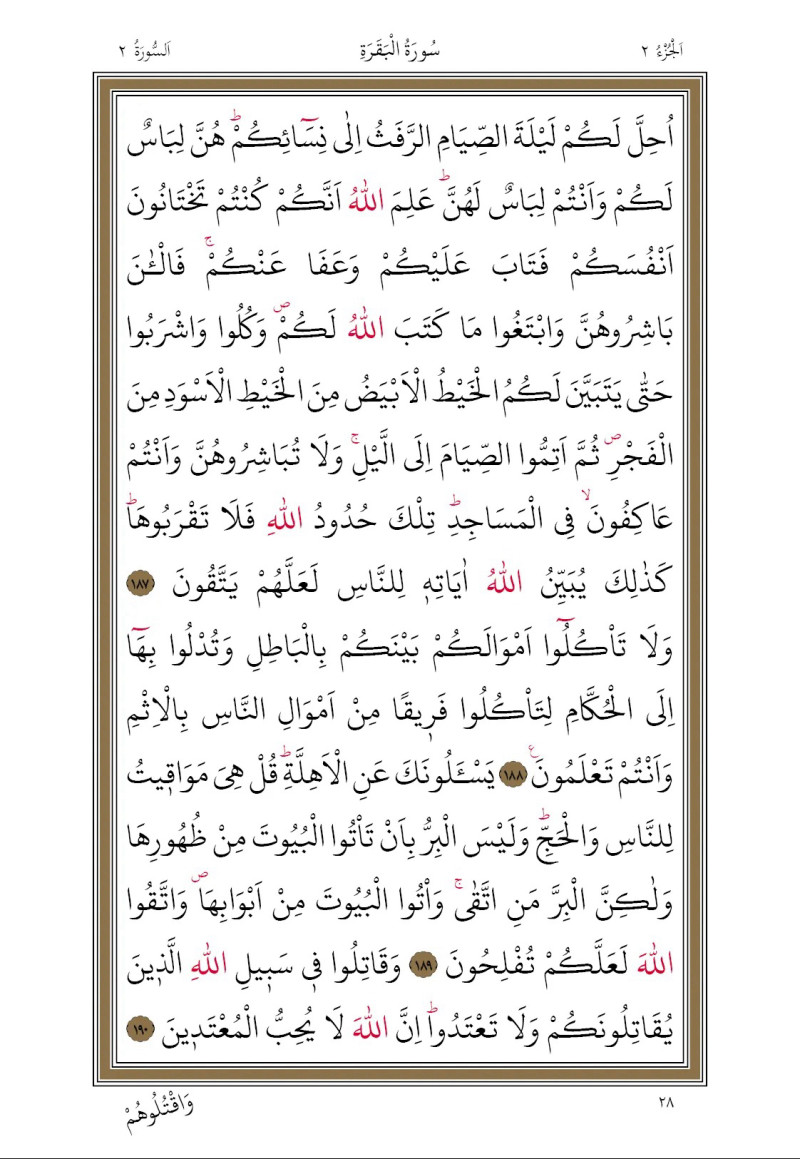 اَلْجُزْءُ ٢
سُورَةُ الْبَقَرَةِ
اَلسُّورَةُ ٢
اُحِلَّ لَكُمْ لَيْلَةَ الصِّيَامِ الرَّفَثُ اِلٰى نِسَٓائِكُمْۜ هُنَّ لِبَاسٌ
لَكُمْ وَاَنْتُمْ لِبَاسٌ لَهُنَّۜ عَلِمَ اللّٰهُ اَنَّكُمْ كُنْتُمْ تَخْتَانُونَ
اَنْفُسَكُمْ فَتَابَ عَلَيْكُمْ وَعَفَا عَنْكُمْۚ فَالْـٰٔنَ
بَاشِرُوهُنَّ وَابْتَغُوا مَا كَتَبَ اللّٰهُ لَكُمْۖ وَكُلُوا وَاشْرَبُوا
حَتّٰى يَتَبَيَّنَ لَكُمُ الْخَيْطُ الْاَبْيَضُ مِنَ الْخَيْطِ الْاَسْوَدِ مِنَ
الْفَجْرِۖ ثُمَّ اَتِمُّوا الصِّيَامَ اِلَى الَّيْلِۚ وَلَا تُبَاشِرُوهُنَّ وَاَنْتُمْ
عَاكِفُونَۙ فِى الْمَسَاجِدِۜ تِلْكَ حُدُودُ اللّٰهِ فَلَا تَقْرَبُوهَاۜ
كَذٰلِكَ يُبَيِّنُ اللّٰهُ اٰيَاتِه۪ لِلنَّاسِ لَعَلَّهُمْ يَتَّقُونَ ﴿١٨٧﴾
وَلَا تَأْكُلُٓوا اَمْوَالَكُمْ بَيْنَكُمْ بِالْبَاطِلِ وَتُدْلُوا بِهَٓا
اِلَى الْحُكَّامِ لِتَأْكُلُوا فَر۪يقًا مِنْ اَمْوَالِ النَّاسِ بِالْاِثْمِ
وَاَنْتُمْ تَعْلَمُونَ ع ﴿١٨٨﴾ يَسْـَٔلُونَكَ عَنِ الْاَهِلَّةِۜ قُلْ هِىَ مَوَاق۪يتُ
لِلنَّاسِ وَالْحَجِّۜ وَلَيْسَ الْبِرُّ بِاَنْ تَأْتُوا الْبُيُوتَ مِنْ ظُهُورِهَا
وَلٰكِنَّ الْبِرَّ مَنِ اتَّقٰىۚ وَأْتُوا الْبُيُوتَ مِنْ اَبْوَابِهَاۖ وَاتَّقُوا
اللّٰهَ لَعَلَّكُمْ تُفْلِحُونَ ﴿١٨٩﴾ وَقَاتِلُوا ف۪ى سَب۪يلِ اللّٰهِ الَّذ۪ينَ
يُقَاتِلُونَكُمْ وَلَا تَعْتَدُواۜ اِنَّ اللّٰهَ لَا يُحِبُّ الْمُعْتَد۪ينَ ﴿١٩٠﴾
٢٨
وَاقْتُلُوهُمْ